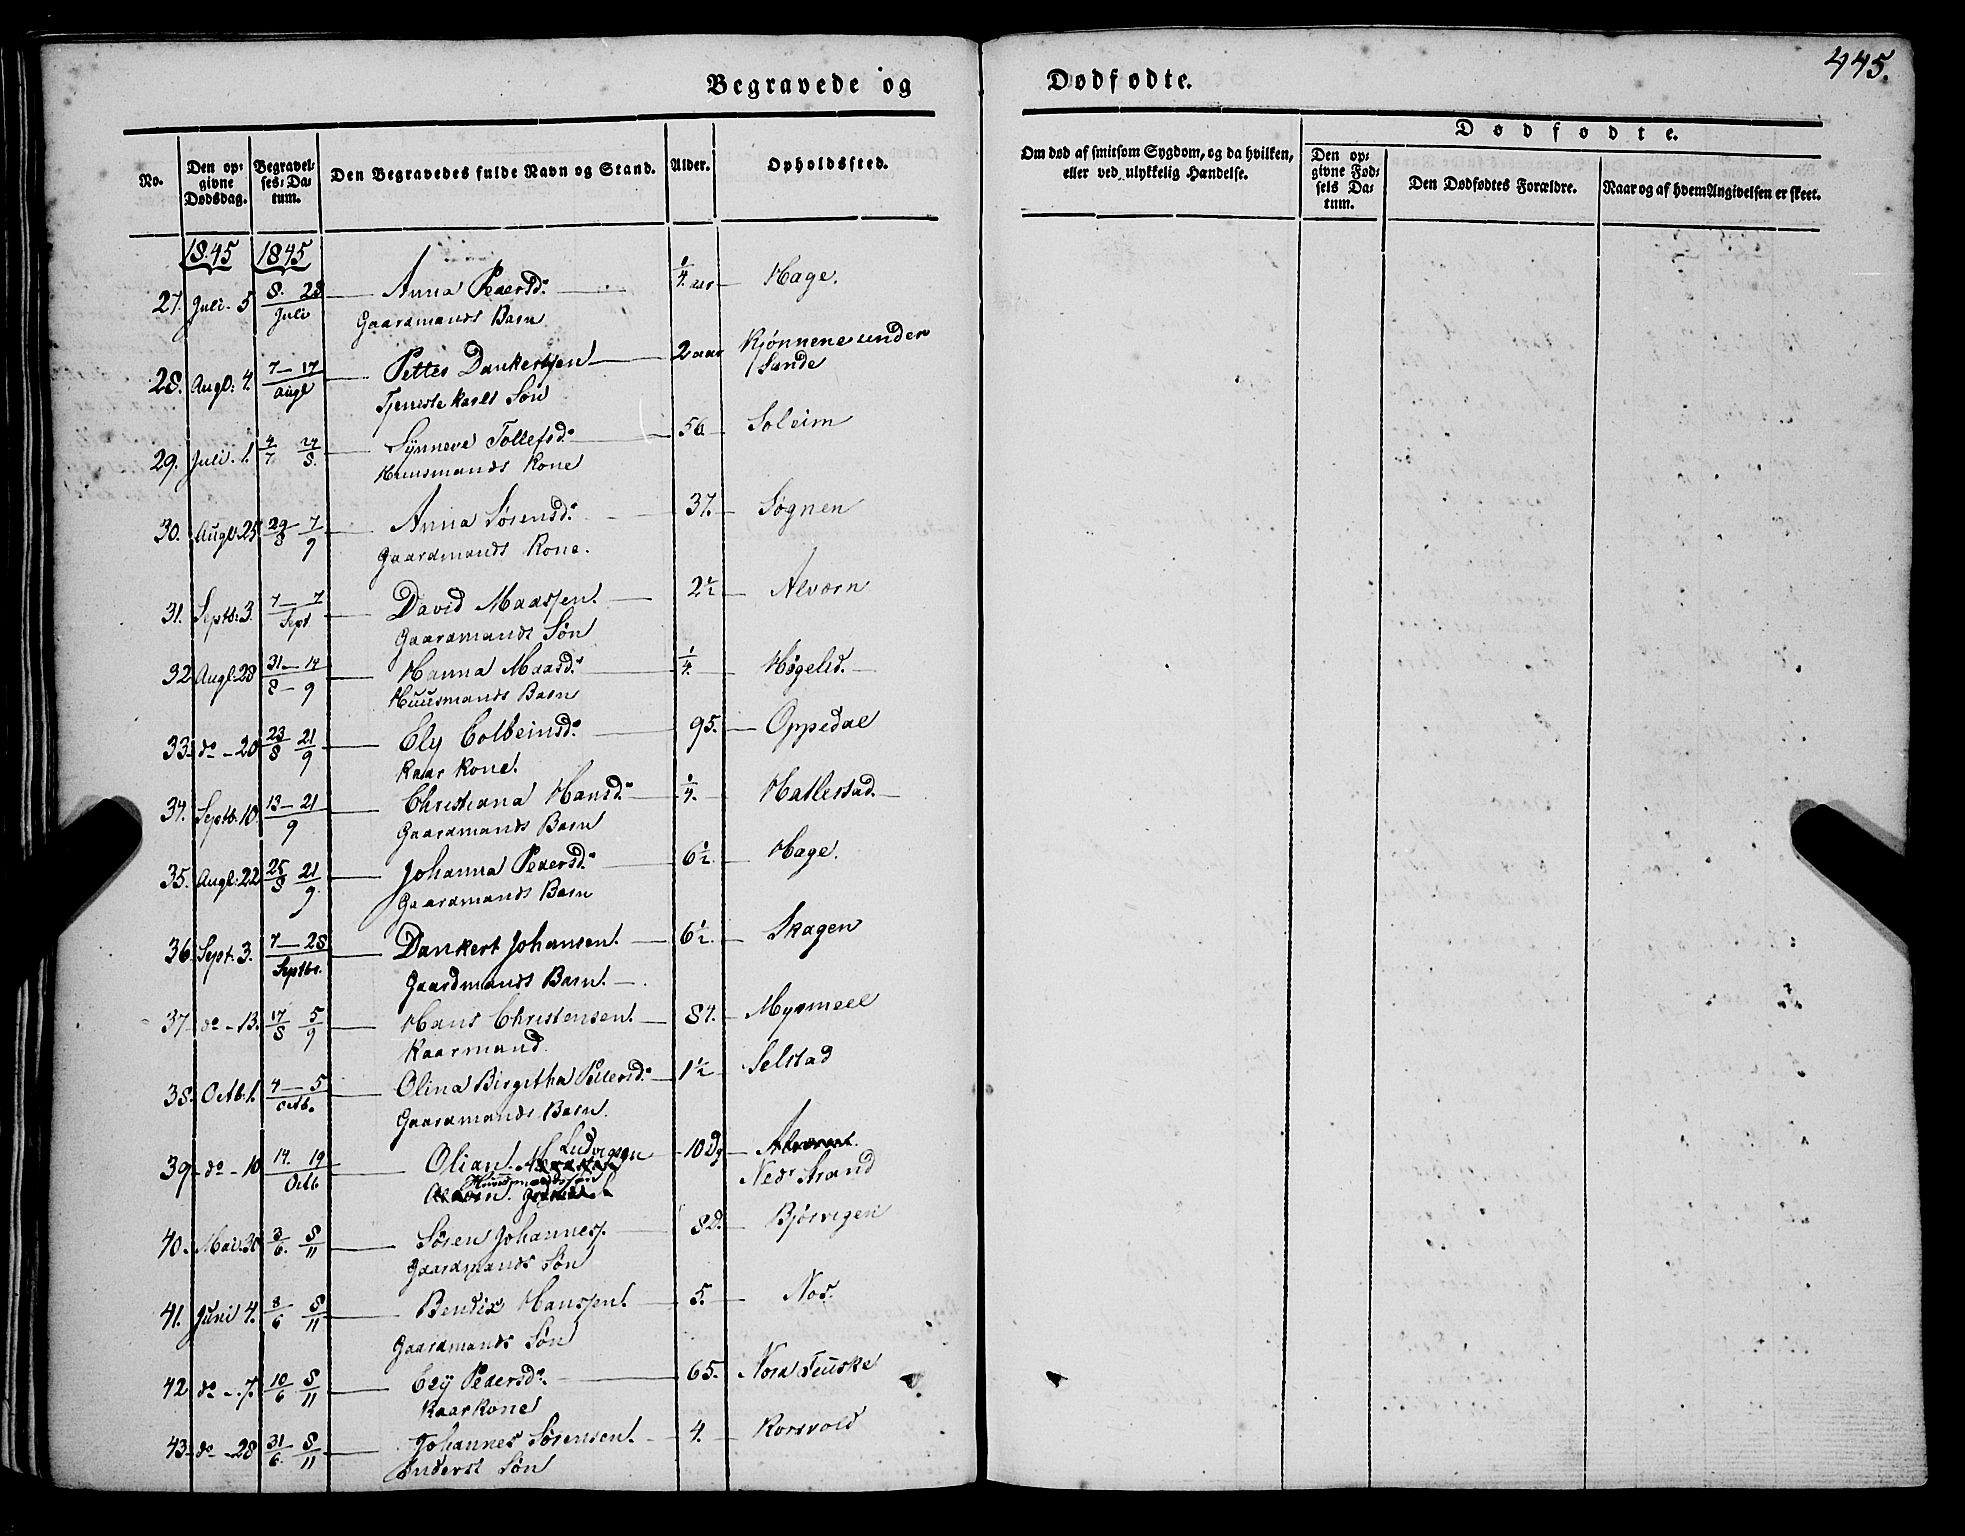 445.
Begravede og Dødfødte.
No. Den opgivne Dødsdag. Begravelses-Datum. Den Begravedes fulde Navn og Stand. Alder. Opholdssted. Om død af smitsom Sygdom, og da hvilken, eller ved ulykkelig Hændelse.
Dødfødte.
Den opgivne Fødsels Datum. Den Dødfødtes Forældre. Naar og af hvem Angivelsen er skeet.
1845 1845
27. Juli. 5 8. 28 Juli Anna Pedersd. 1/4 aar Hage.
Gaardmands Barn
28. Augl: 4. 7 — 17 Augl Petter Dankertsen 2 aar Kjønnene under Sande
Tjenestekarls Søn
29. Juli. 1. 4/7 24/8. Synneve Tollefsd. 56 Soleim
Huusmands Kone
30. Augl. 25 29/8 7/9 Anna Sørensd. 37. Søgnen
Gaardmands Kone.
31. Septb: 3. 7 — 7 Sept David Maassen. 2 1/2 Alværn
Gaardmands Søn
32. Augl. 28 31 — 14 8 — 9 Hanna Maasd. 1/4. Høgelid.
Huusmands Barn
33. do — 20 23/8 21/9 Ely Colbeinsd. 95. Oppedal
Kaarkone.
34. Septb. 10. 13 — 21 9 Christiana Hansd. 1/4. Hatlestad.
Gaardmands Barn
35. Augl: 22 25/8 21/9. Johanna Pedersd. 6 1/2 Hage.
Gaardmands Barn
36. Sept. 3. 7 — 28 Septbr. Dankert Johansen. 6 1/2 Skagen
Gaardmands Barn.
37. do — 13. 17/8 5/9 Hans Christensen. 84. Myrmeel
Kaarmand
38. Octb. 1. 4 — 5 Octb. Olina Birgitha Petersd. 1 1/2 Selstad
Gaardmands Barn.
39. do — 10 14. 19 Octb Olian. Ludvigsen 10 Dg
Huusmandssøn Ned Strand
40. Mai. 30 3/6. 8/11 Søren Johannes. 8 D. Bjørvigen
Gaardmands Søn
41. Juni 4. 8/6 8/11 Bendix Hanssen. 5. Nos.
Gaardmands Søn
42. do — 7. 10/6 8/11 Ely Pedersd. 65. Nord Feuske
Kaarkone
43. do — 28 31/6. 8/11 Johannes Sørensen. 4. Korsvold
Inderst Søn